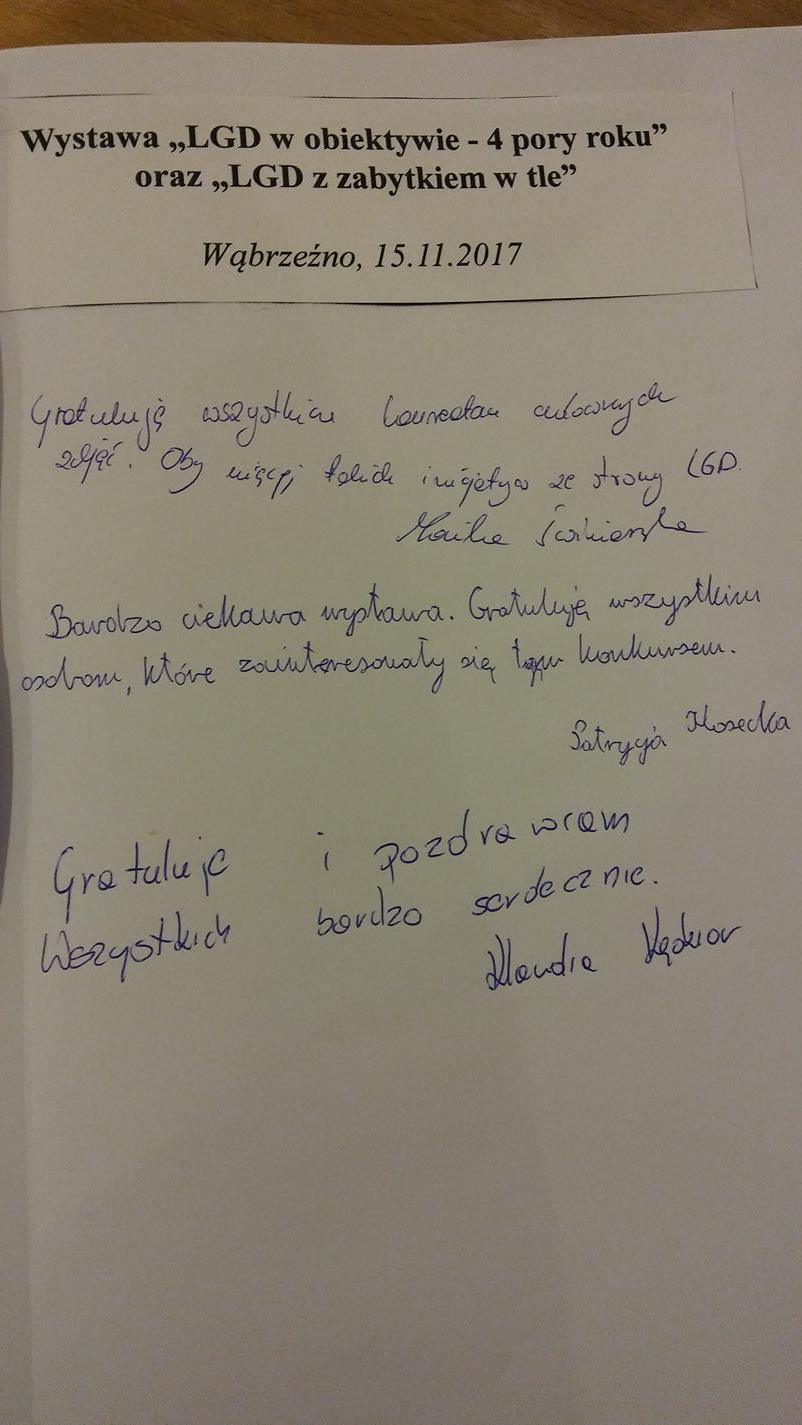 Wystawa „LGD w obiektywie - 4 pory roku”
oraz „LGD z zabytkiem w tle”
Wąbrzeźno, 15.11.2017
Gratuluję wszystkim laureatom cudownych
zdjęć. Oby więcej takich inicjatyw ze strony LGD.
Bardzo ciekawa wystawa. Gratuluję wszystkim
osobom, które zainteresowały się tym konkursem.
Patrycja
Gratuluję i pozdrawiam
Wszystkich bardzo serdecznie.
Klaudia